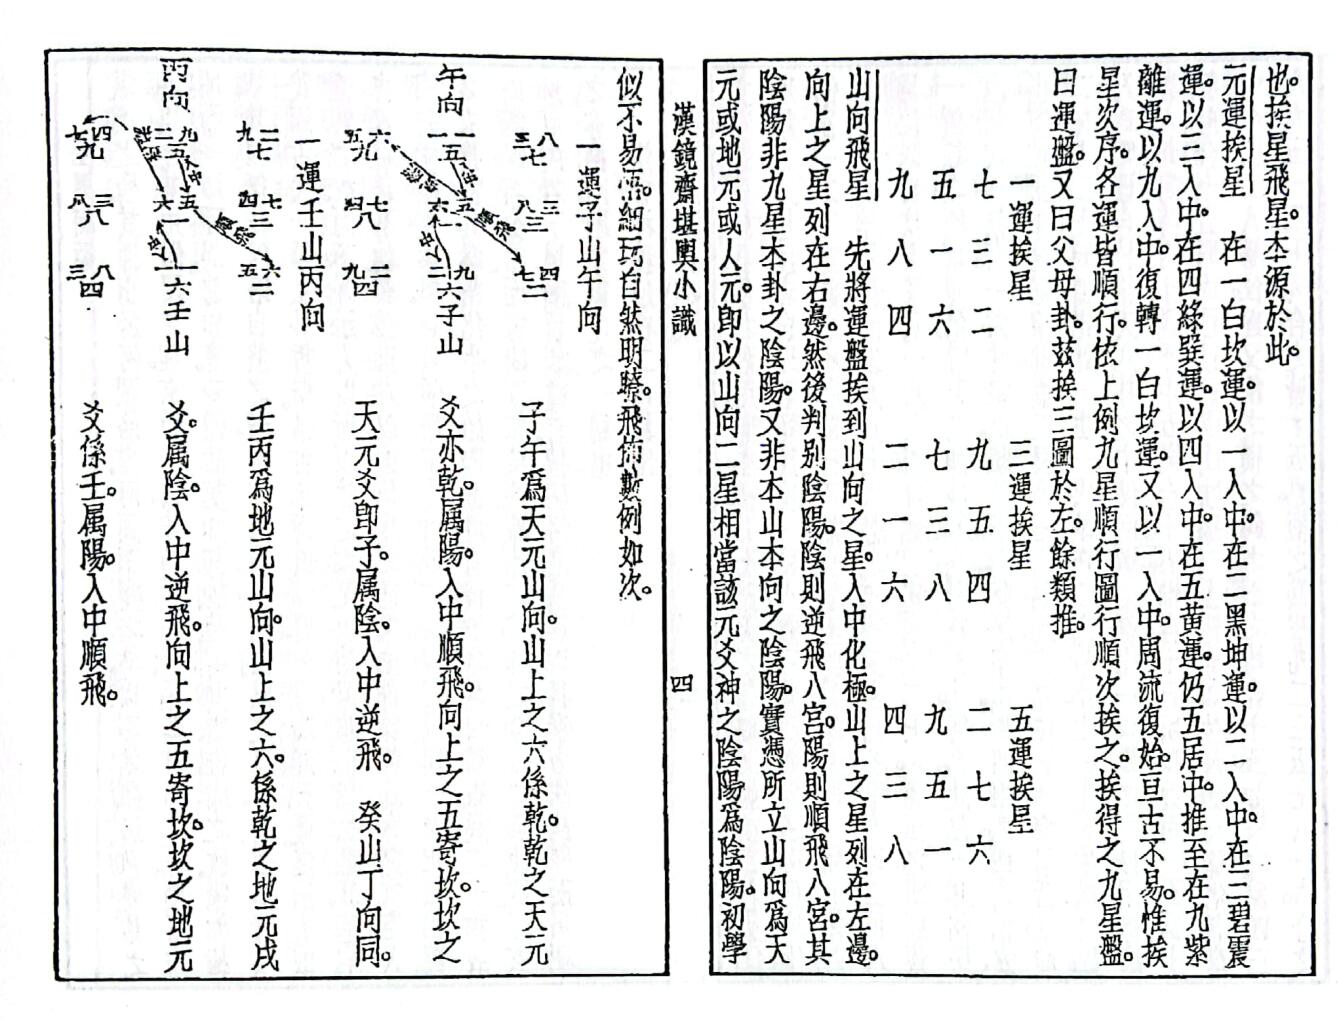 也。挨星飛星。本源於此。
元運挨星　在一白坎運。以一入中。在二黑坤運。以二入中。在三碧震
運。以三入中。在四綠巽運。以四入中。在五黄運。仍五居中。推至在九紫
離運。以九入中。復轉一白坎運。又以一入中。周流復始。亘古不易。惟挨
星次序。各運皆順行。依上例九星順行圖行順次挨之。挨得之九星盤。
曰運盤。又曰父母卦。茲挨三圖於左。餘類推。
一運挨星　三運挨星　五運挨星
七三二　九五四　二七六
五一六　七三八　九五一
九八四　二一六　四三八
山向飛星　先將運盤挨到山向之星。入中化極。山上之星列在左邊。
向上之星列在右邊。然後判别陰陽。陰則逆飛八宮。陽則順飛八宮。其
陰陽非九星本卦之陰陽。又非本山本向之陰陽。實憑所立山向爲天
元或地元或人元。卽以山向二星相當該元爻神之陰陽爲陰陽。初學
漢鏡齋堪輿小識　四
似不易悟。細玩自然明瞭。飛佈數例如次。
一運子山午向
八三七　三八三　四七二
子午爲天元山向。山上之六係乾。乾之天元
午向　一一五　五六一　九二六　子山
爻亦乾。属陽。入中順飛。向上之五寄坎。坎之
六五九　七四八　二九四
天元爻卽子。属陰。入中逆飛。　癸山丁向同。
一運壬山丙向
二九七　七四三　六五二
壬丙爲地元山向。山上之六。係乾之地元戌
丙向　九二五　五六一　一一六　壬山
爻。属陰。入中逆飛。向上之五寄坎。坎之地元
四七九　三八八　八三四
爻係壬。属陽。入中順飛。